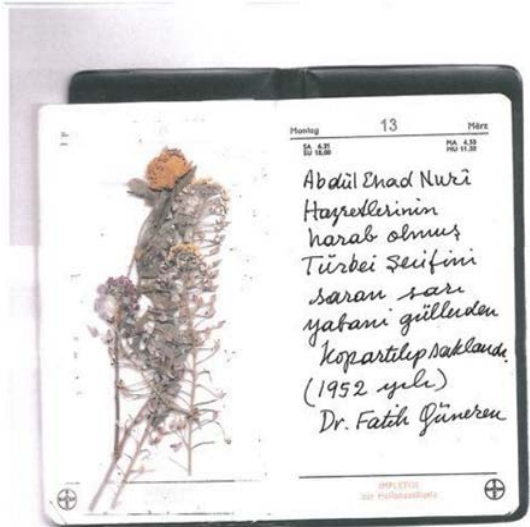 Montag 13 März
SA 6.21 MA 4.53
SU 18.00 MU 11.20
Abdül Ehad Nuri
Hazretlerinin
harab olmuş
Türbei Şerifini
saran sarı
yabani güllerden
kopartılıp saklandı.
(1952 yılı)
Dr. Fatih Güneren
IMPLETOL
zur Heilanästhesie